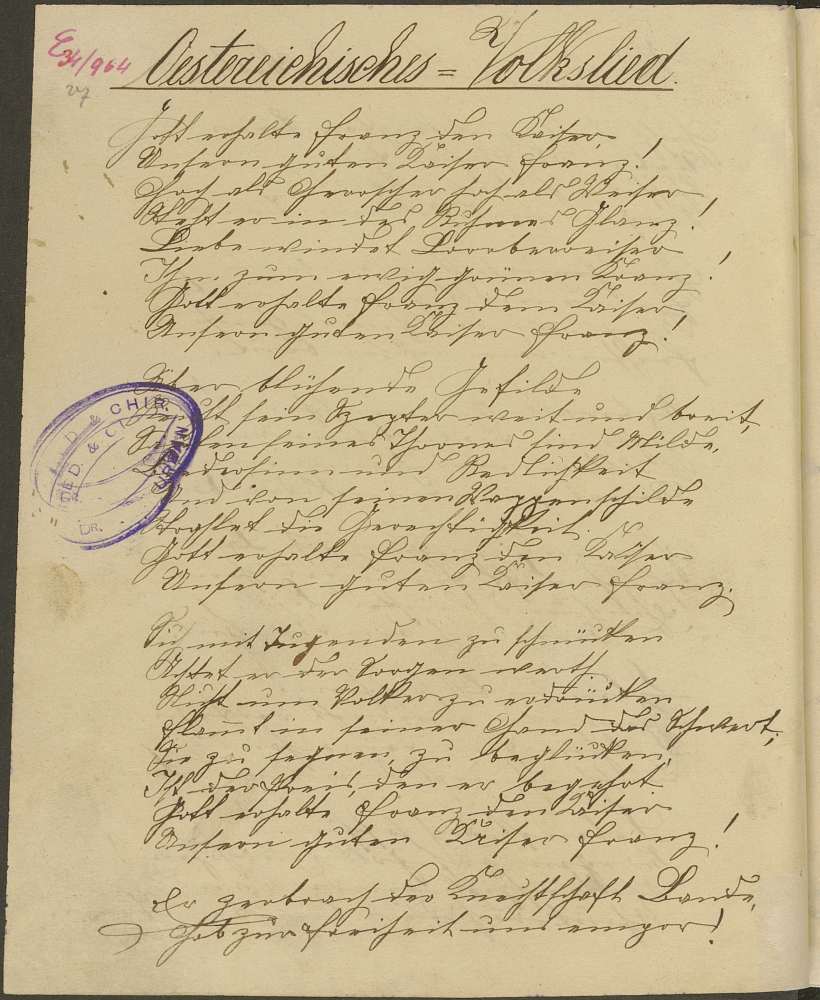 E 34/964
27
Oesterreichisches = Volkslied.
Gott erhalte Franz den Kaiser,
Unsern guten Kaiser Franz!
Hoch als Herrscher, hoch als Weiser
Steht er in des Ruhmes Glanz!
Liebe windet Lorrberreiser
Ihm zum ewig grünen Kranz!
Gott erhalte Franz den Kaiser
Unsern guten Kaiser Franz!
Über blühende Gefilde
Reicht sein Szepter weit und breit,
Säulen seines Thrones sind Milde,
Biedersinn und Redlichkeit
Und von seinen Wappenschilde
Strahlet die Gerechtigkeit.
Gott erhalte Franz den Kaiser
Unsern guten Kaiser Franz.
Sich mit Tugenden zu schmücken
Achtet er der Sorgen werth
Nicht um Völker zu erdrücken
Flammt in seiner Hand das Schwert;
Sie zu segnen, zu beglücken,
Ist der Preis, den er begehrt
Gott erhalte Franz den Kaiser
Unsern guten Kaiser Franz!
Er zerbrach der Knechtschaft Bande,
Hob zur Freiheit uns empor!
MED. & CHIR.
DR. URBAN